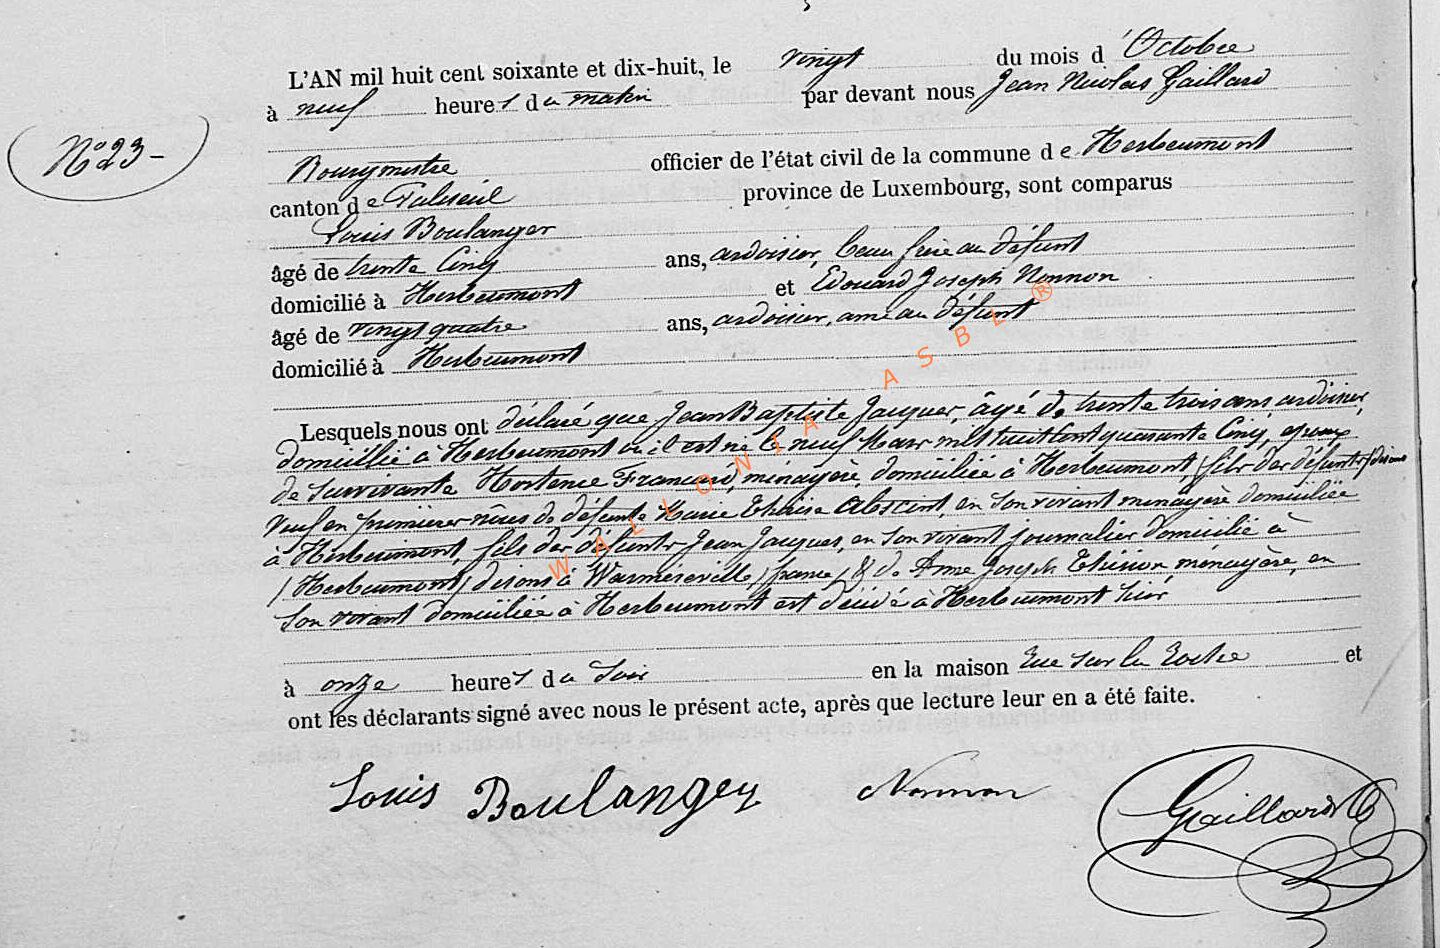 L'AN mil huit cent soixante et dix-huit, le vingt du mois d'Octobre
à neuf heures du matin par devant nous Jean Nicolas Gaillard
No 23 -
Bourgmestre officier de l'état civil de la commune de Herbeumont
canton de Paliseul province de Luxembourg, sont comparus
Louis Boulanger
âgé de trente Cinq ans, ardoisier, beau frère au défunt
domicilié à Herbeumont et Edouard Joseph Nonnon
âgé de vingt quatre ans, ardoisier, ami au défunt
domicilié à Herbeumont
Lesquels nous ont déclaré que Jean Baptiste Jacques, âgé de trente trois ans ardoisier,
domicilié à Herbeumont où il est né le neuf Mars mil huit Cent quarante Cinq, époux
de survivante Hortence François, ménagère, domiciliée à Herbeumont, (fils des défunts) disons
veuf en premières nôces de défunte Marie Thérèse , en son vivant ménagère domiciliée
à Herbeumont, fils des défunts Jean Jacques, en son vivant journalier domicilié à
(Herbeumont) disons à Warmériville (france) & de Anne Joseph Thirion, ménagère, en
son vivant domiciliée à Herbeumont est décédé à Herbeumont hier
à onze heures du soir en la maison Rue sur la Roche et
ont les déclarants signé avec nous le présent acte, après que lecture leur en a été faite.
Louis Boulanger Nonnon Gaillard
WALLONIA ASBL ®